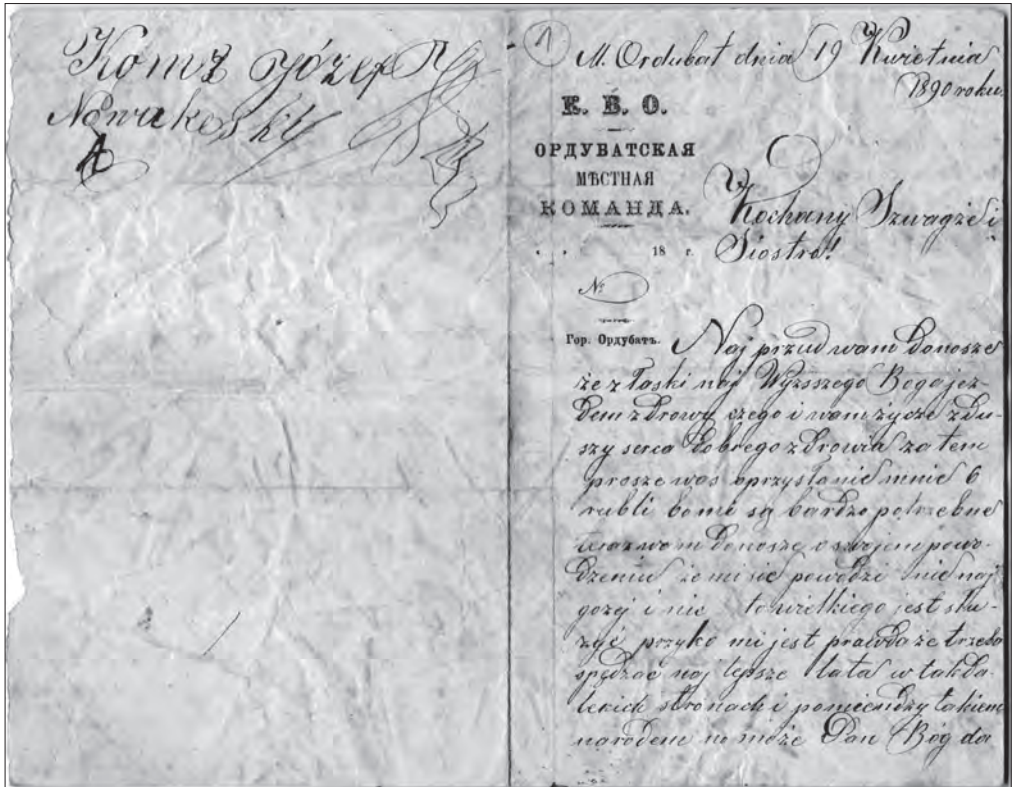 Józef
Nowakosky
1
M. Ordubat dnia 19 Kwietnia
1890 roku.
К. В. О.
ОРДУВАТСКАЯ
МѢСТНАЯ
КОМАНДА.
18 г.
№
Гор. Ордубатъ.
Kochany Szwagże i
Siostro!
Naj przud wam Donosze
że z łaski naj Wyższego Boga jez-
Dem zDrowy czego i wam życze zDu-
szy serca Dobrego zDrowia za tem
prosze was oprzysłanie mnie 6
rubli bo mi są barDzo potrzebne
teraz wam Donosze o swojem powo-
Dzeniu że mi sie powoDzi nie naj
gożej i nie to wielkiego jest słu-
żyć przyko mi jest prawDa że trzeba
spęDzać naj lepsze lata w takDa-
lekich stronach i pomienDzy takiem
naroDem no może Pan Bóg da